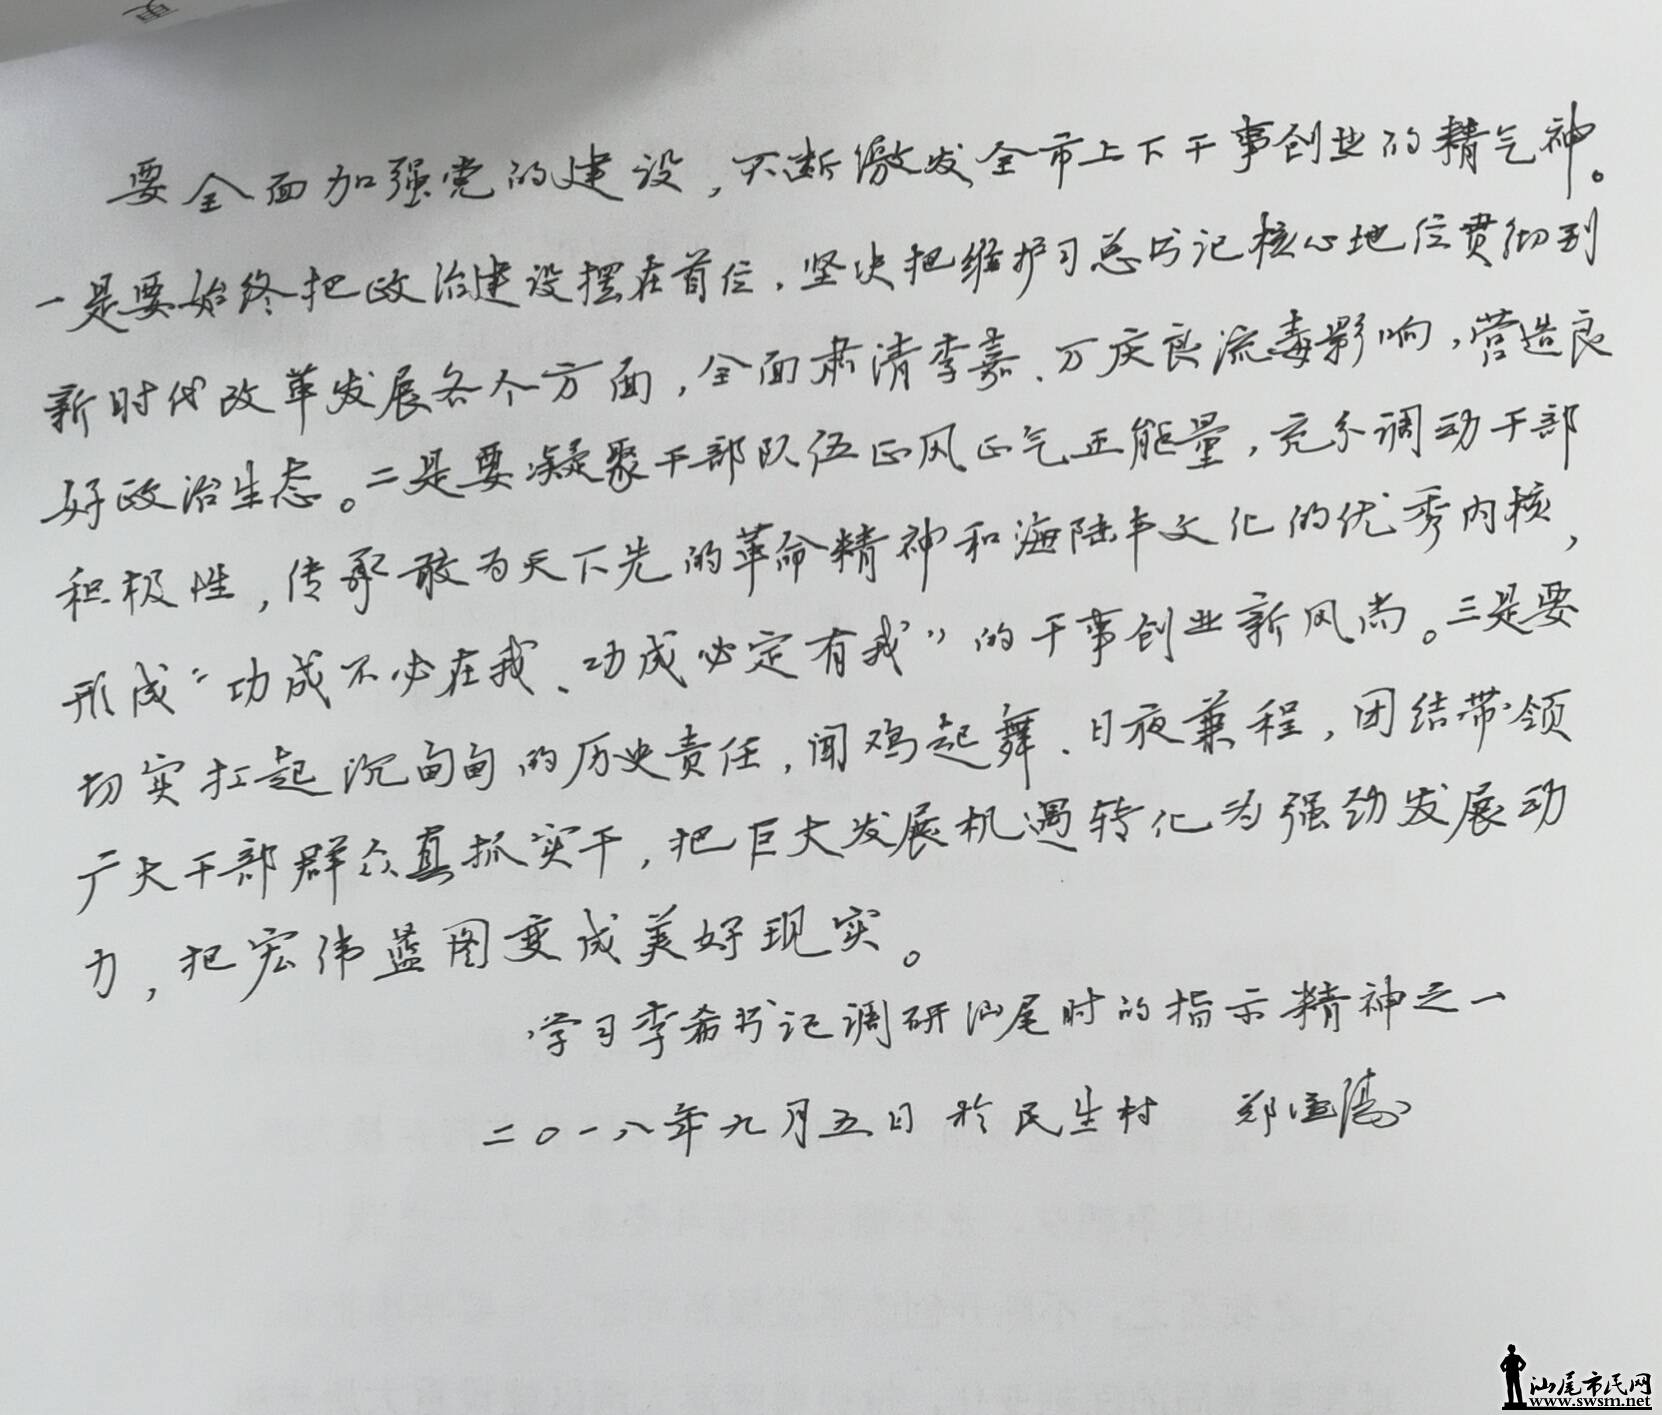 要全面加强党的建设，不断激发全市上下干事创业的精气神。
一是要始终把政治建设摆在首位，坚决把维护习总书记核心地位贯彻到
新时代改革发展各个方面，全面肃清李嘉、万庆良流毒影响，营造良
好政治生态。二是要凝聚干部队伍正风正气正能量，充分调动干部
积极性，传承敢为天下先的革命精神和海陆丰文化的优秀内核，
形成“功成不必在我、功成必定有我”的干事创业新风尚。三是要
切实扛起沉甸甸的历史责任，闻鸡起舞、日夜兼程，团结带领
广大干部群众真抓实干，把巨大发展机遇转化为强劲发展动
力，把宏伟蓝图变成美好现实。
学习李希书记调研汕尾时的指示精神之一
二〇一八年九月五日于民生村 郑
汕尾市民网
www.swsm.net